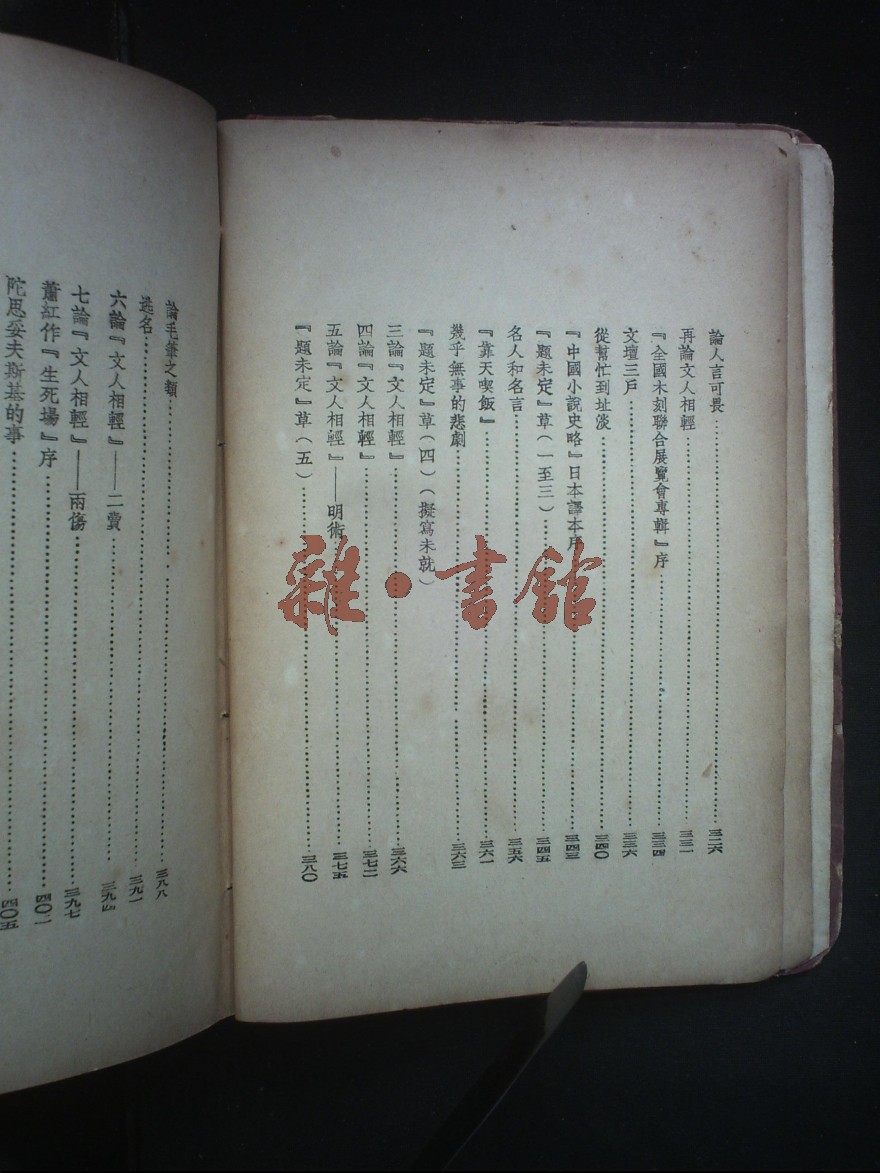 論人言可畏……三二六
再論文人相輕……三三一
『全國木刻聯合展覽會專輯』序……三三四
文壇三戶……三三六
從幫忙到扯淡……三四〇
『中國小說史略』日本譯本序……三四三
『題未定』草(一至三)……三四五
名人和名言……三五六
『靠天喫飯』……三六一
幾乎無事的悲劇……三六三
『題未定』草(四)(擬寫未就)
三論『文人相輕』……三六六
四論『文人相輕』……三七二
五論『文人相輕』——明術……三七五
『題未定』草(五)……三八〇
論毛筆之類……三八八
逃名……三九一
六論『文人相輕』——二賣……三九四
七論『文人相輕』——兩傷……三九七
蕭紅作『生死場』序……四〇二
陀思妥夫斯基的事……四〇五
雜·書館